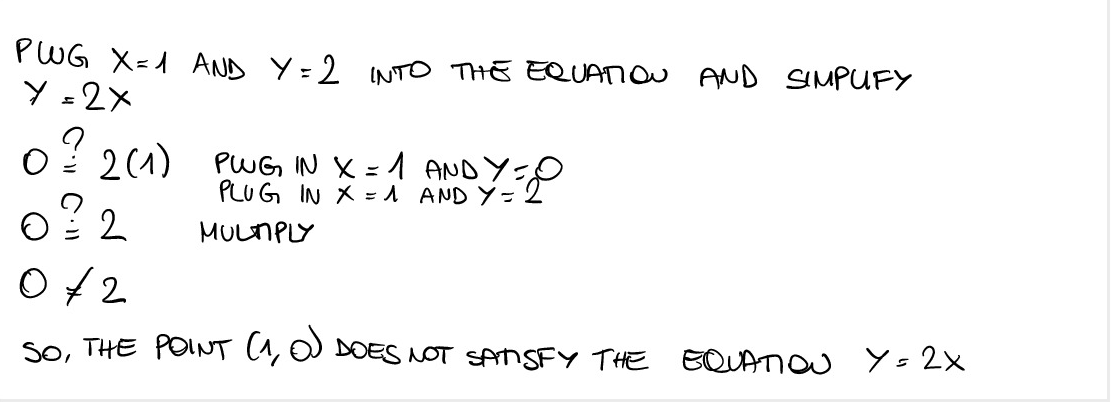 PLUG X=1 AND Y=2 INTO THE EQUATION AND SIMPLIFY
Y=2X
0 ≟ 2(1) PLUG IN X=1 AND Y=0
PLUG IN X=1 AND Y=2
0 ≟ 2 MULTIPLY
0≠2
SO, THE POINT (1,0) DOES NOT SATISFY THE EQUATION Y=2X